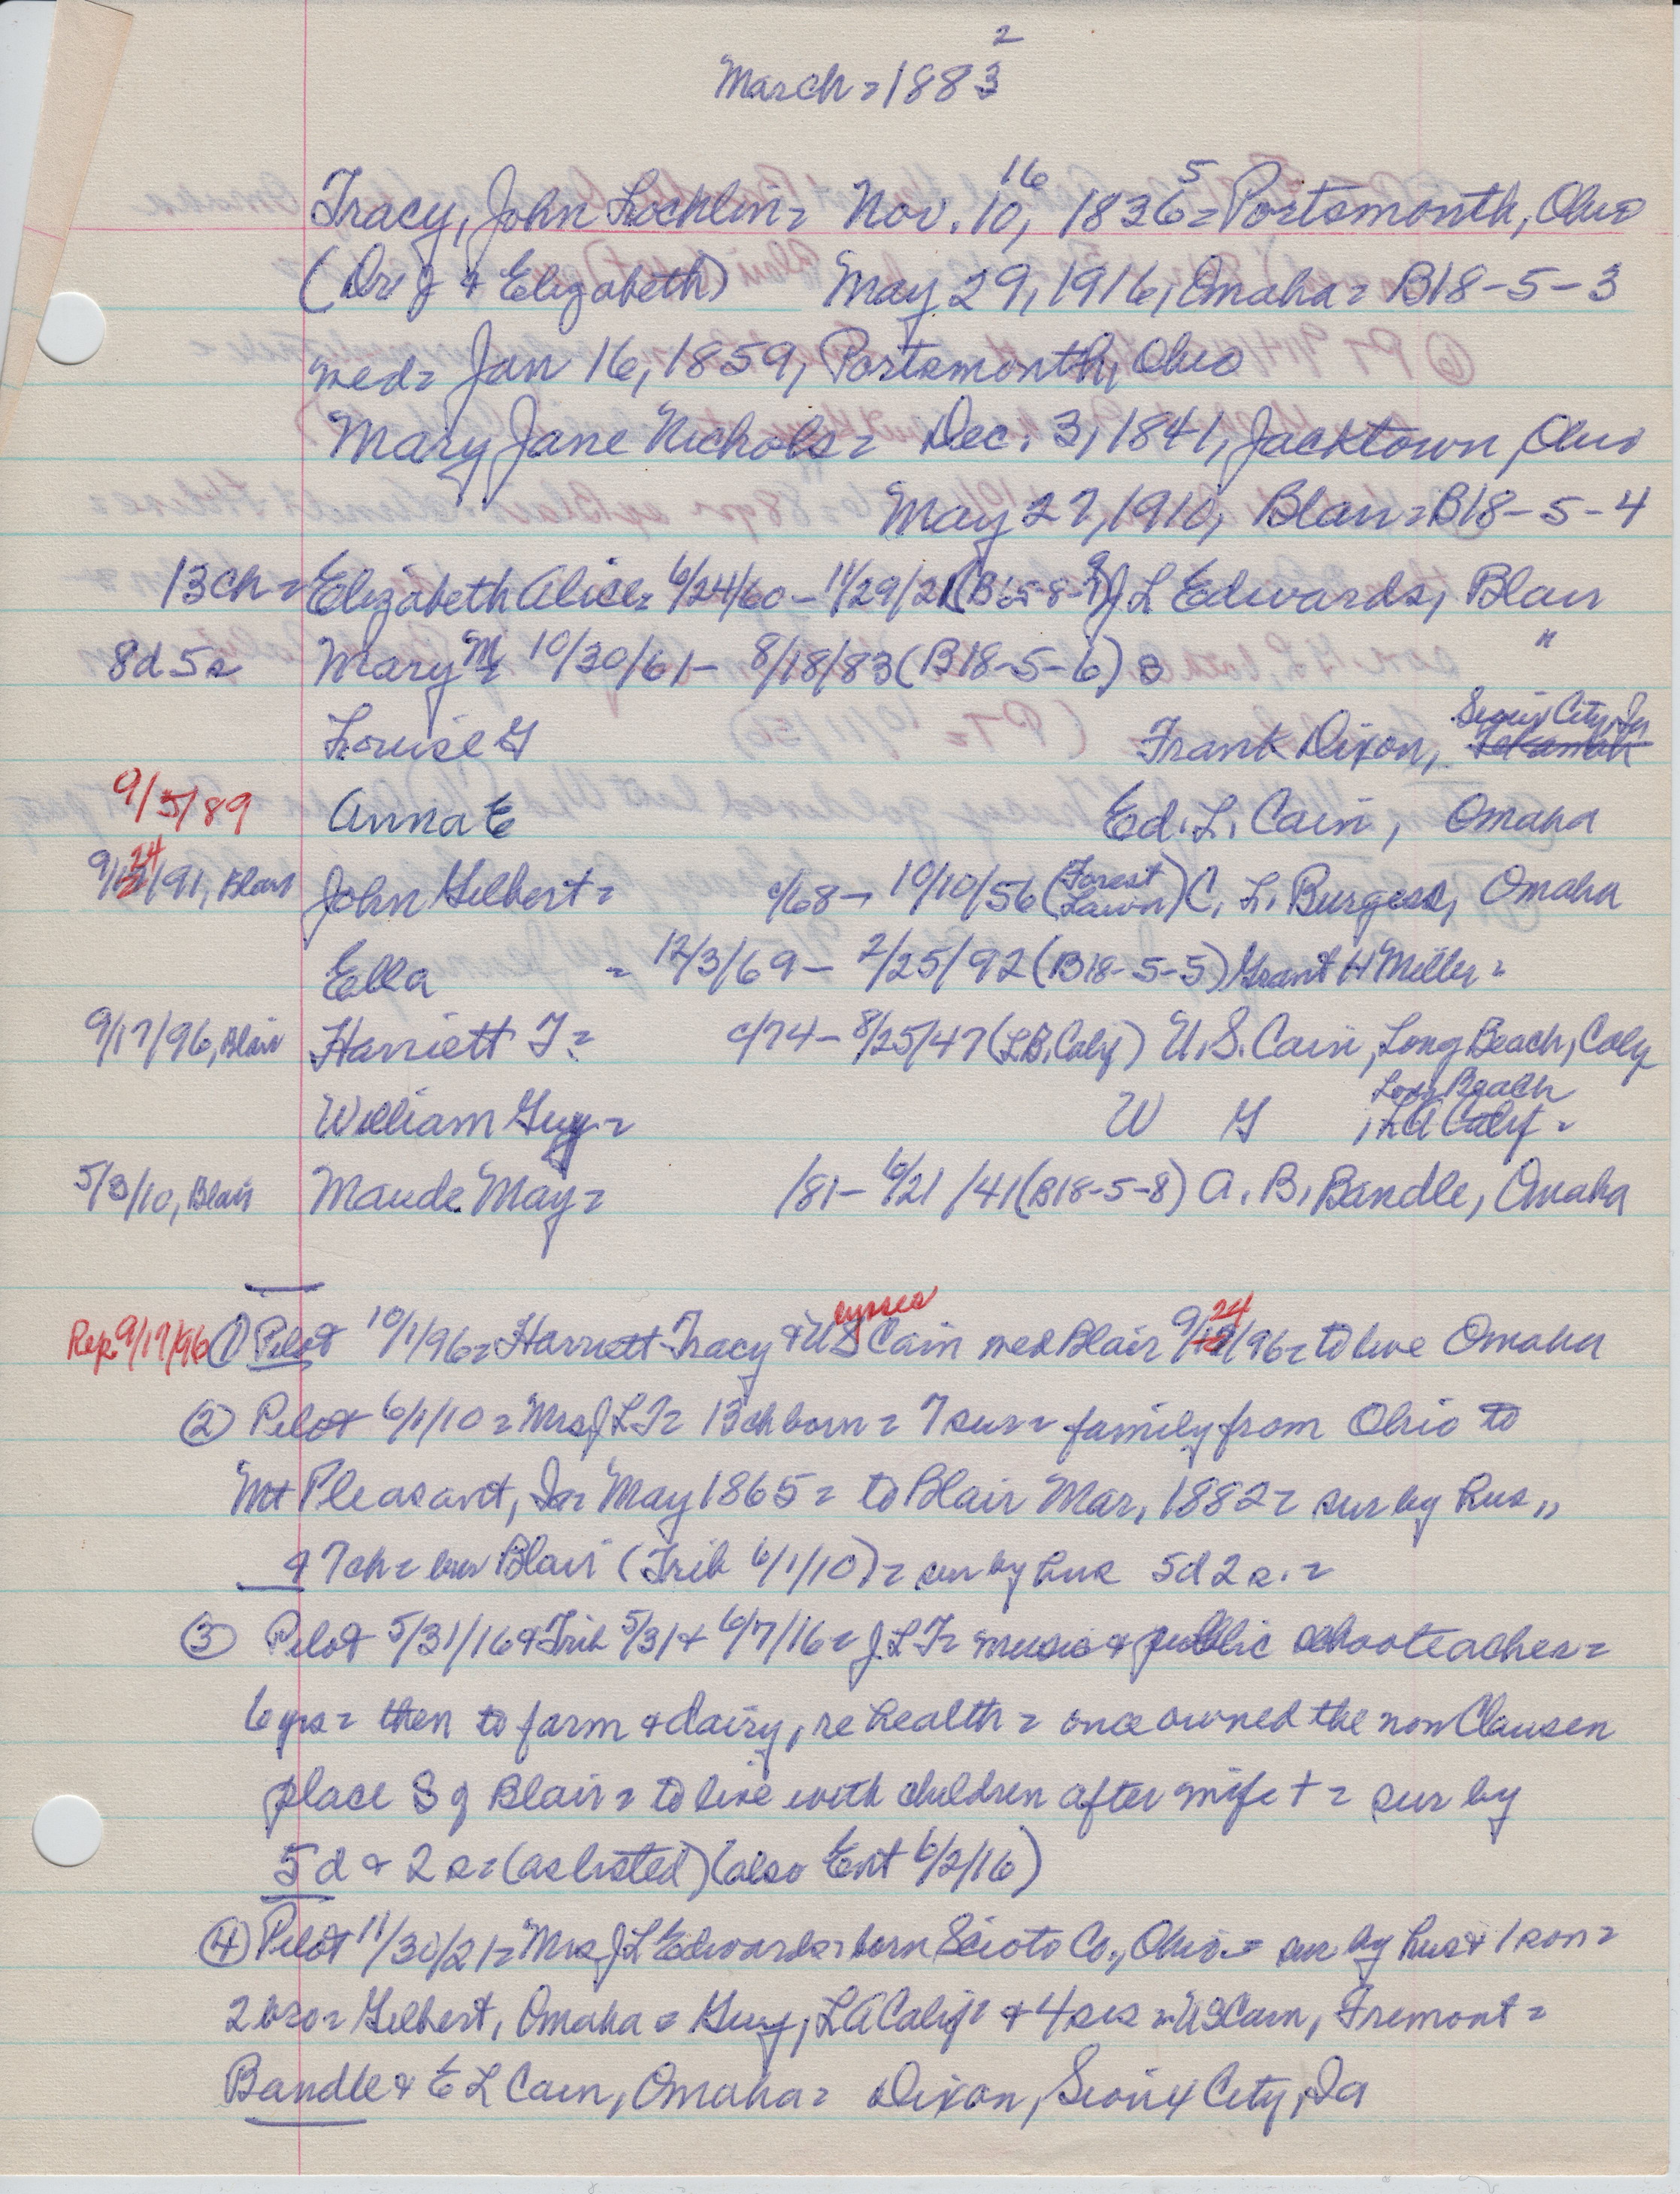 2
March = 1883
16 5
Tracy, John Locklin = Nov. 10, 1836 = Portsmonth, Ohio
(Dr J & Elizabeth) May 29, 1916, Omaha = B18-5-3
med = Jan 16, 1859, Portsmonth, Ohio
Mary Jane Nichols = Dec. 3, 1841, Jacktown, Ohio
May 27, 1910, Blair = B18-5-4
13ch = Elizabeth Alice = 6/24/60 - 11/29/21 J L Edwards, Blair
8d 5s Mary M 10/30/61 - 8/18/83 (B18-5-6) "
Sioux City, Ia
Louise G Frank Dixon, Tekamah
9/5/89 Anna E Ed. L. Cain, Omaha
24
9/ /91, Blair John Gilbert = c/68 - 10/10/56 (Forest Lawn) C. L. Burgess, Omaha
Ella = 12/3/69 - 2/25/92 (B18-5-5) Grant H Miller =
9/17/96, Blair Harriett T = c/74 - 8/25/47 (L.B. Calif) U. S. Cain, Long Beach, Calif
Long Beach
William Guy = W G , LA Calif =
5/3/10, Blair Maude May = /81 - 6/21/41 (B18-5-8) A. B. Bandle, Omaha
24
Rep 9/17/96 ① Pilot 10/1/96 = Harriett Tracy & U S Cain med Blair 9/ /96 = to live Omaha
② Pilot 6/1/10 = Mrs J L T = 13 ch born = 7 sur = family from Ohio to
Mt Pleasant, Ia = May 1865 = to Blair Mar, 1882 = sur by hus ,,
& 7 ch = bur Blair (Trib 6/1/10) = sur by hus 5d 2 s. =
③ Pilot 5/31/16 & Trib 5/31 & 6/7/16 = J. L T = music & public schooteacher =
6 yrs = then to farm & dairy, re health = once owned the now Clausen
place S of Blair = to live with children after wife + = sur by
5d & 2 s = (as listed) (also Ent 6/2/16)
④ Pilot 11/30/21 = Mrs J L Edwards = born Scioto Co., Ohio = sur by hus & 1 son =
2 bro = Gilbert, Omaha = Guy, LA Calif = & 4 sis = U S Cain, Fremont =
Bandle & E L Cain, Omaha = Dixon, Sioux City, Ia